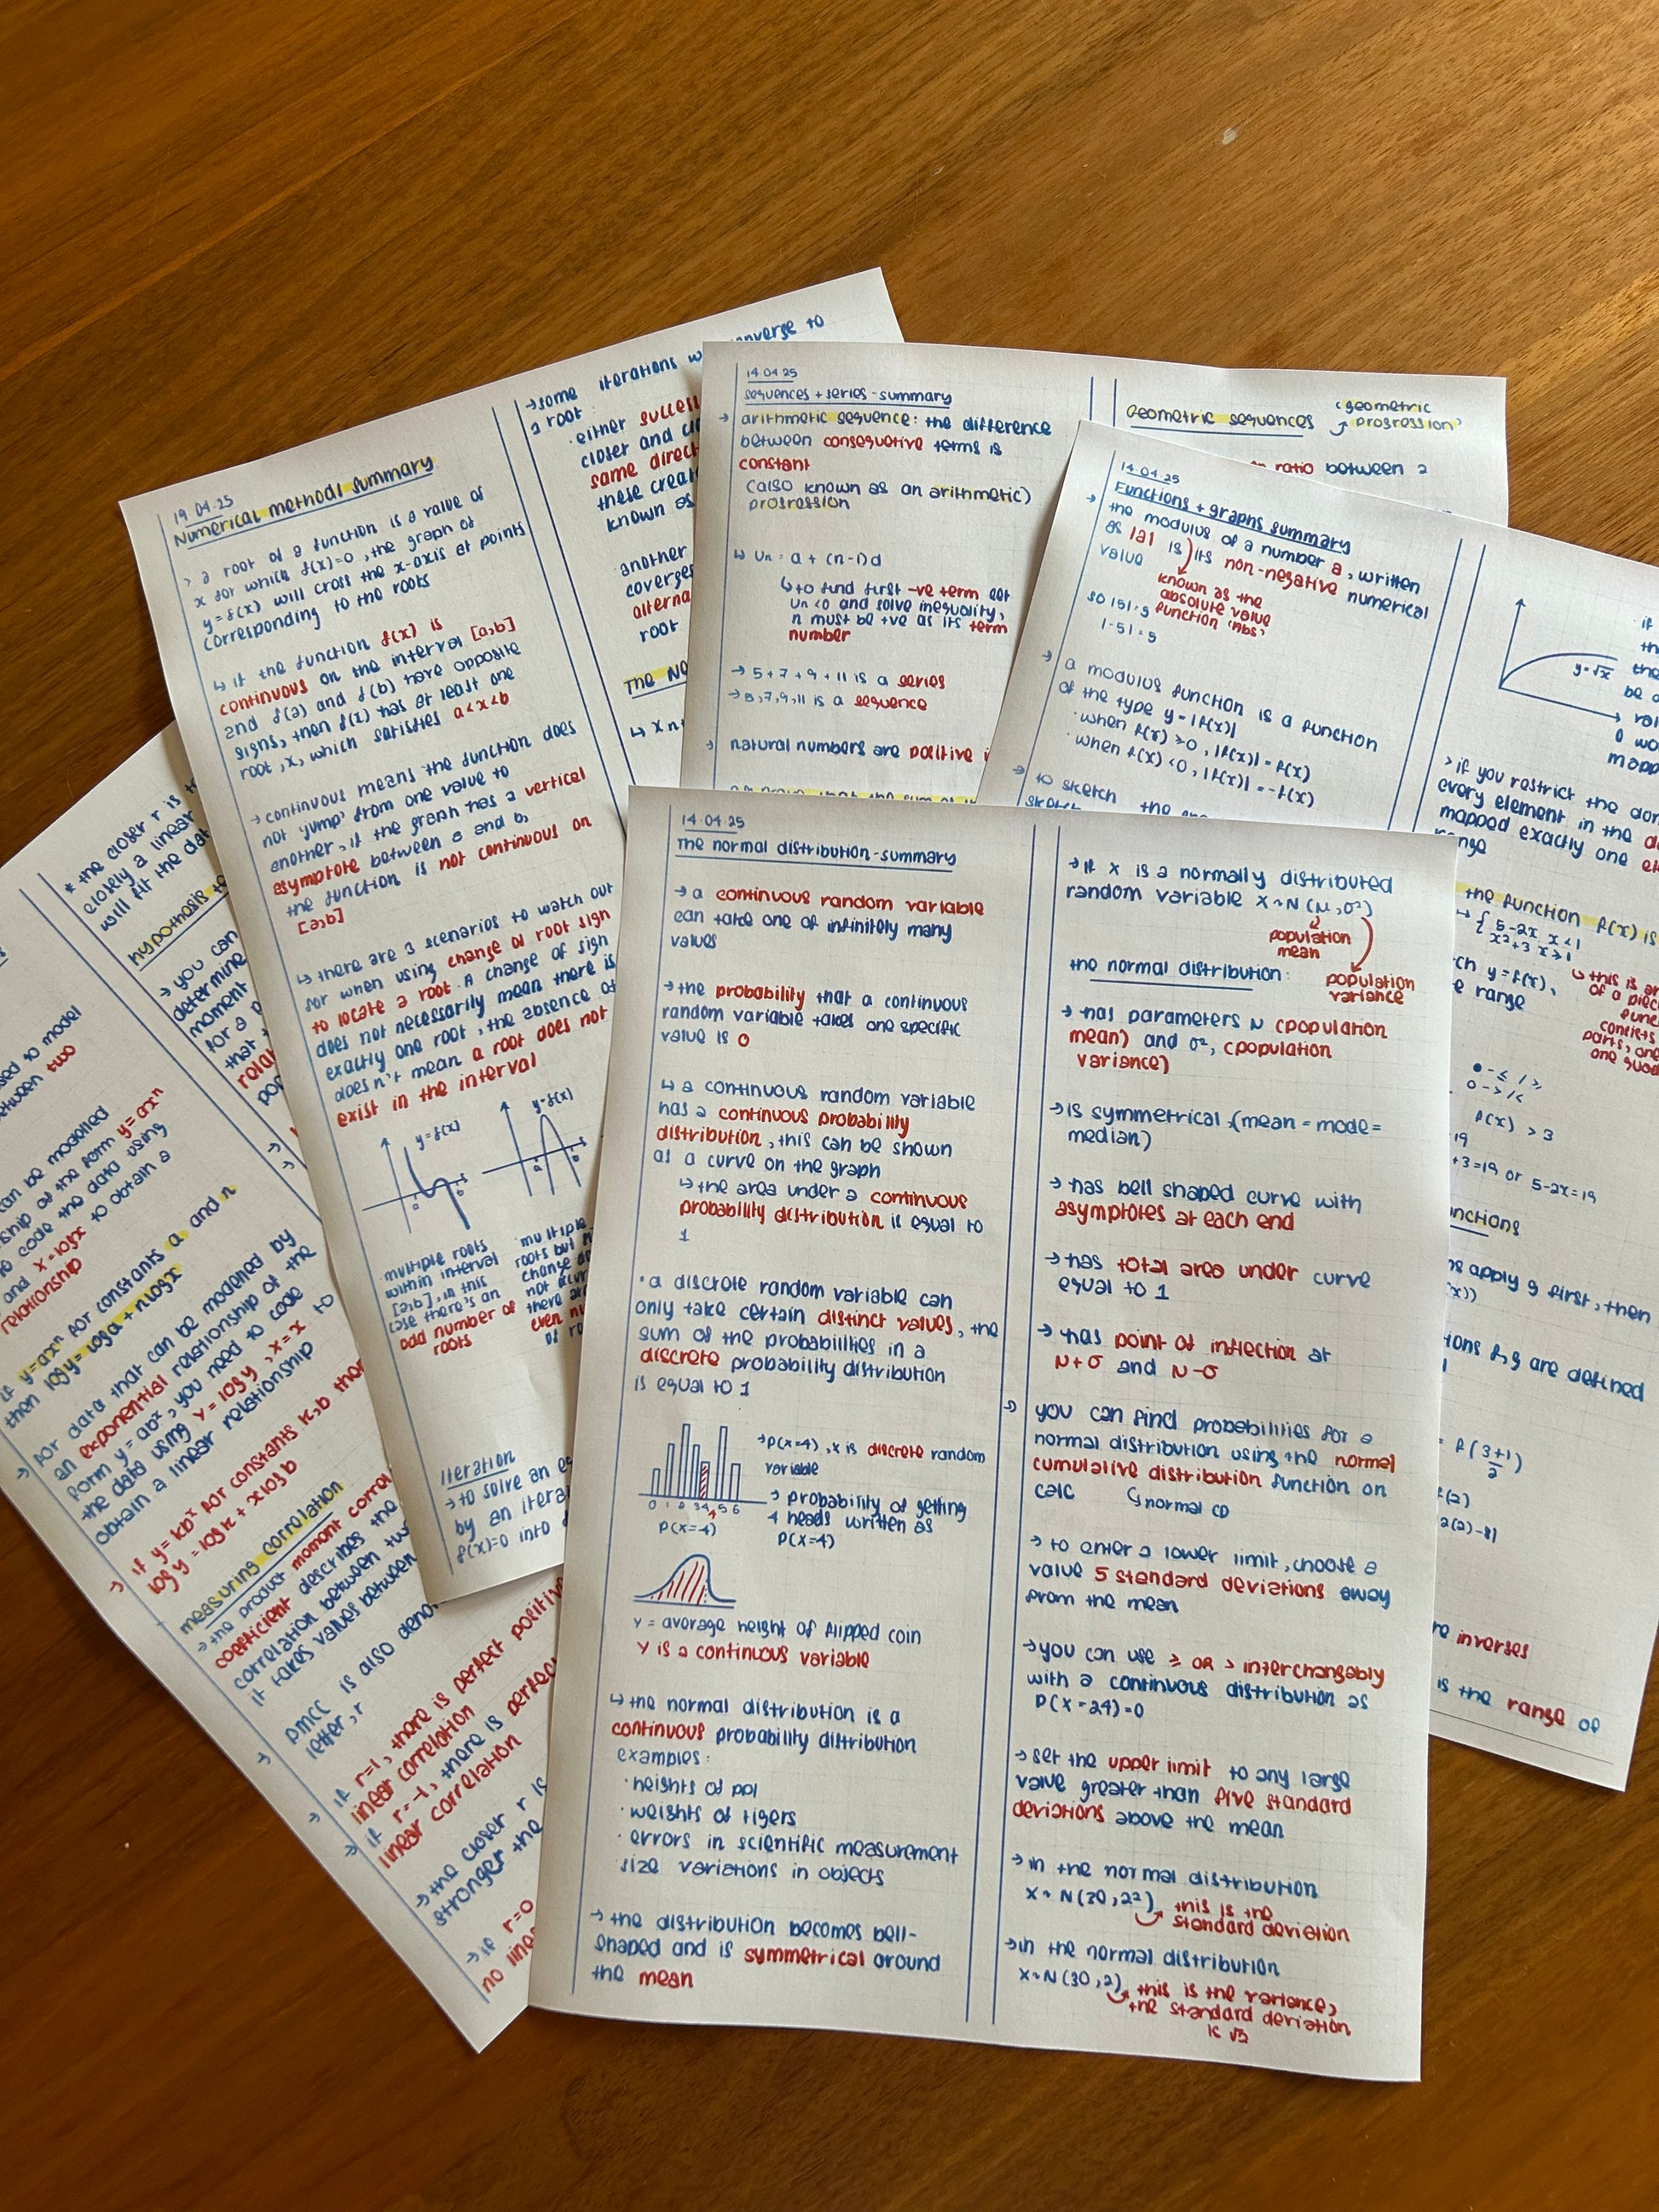 14.04.25
The normal distribution - summary
→ a continuous random variable
can take one of infinitely many
values
→ the probability that a continuous
random variable takes one specific
value is 0
↳ a continuous random variable
has a continuous probability
distribution, this can be shown
as a curve on the graph
↳ the area under a continuous
probability distribution is equal to
1
· a discrete random variable can
only take certain distinct values, the
sum of the probabilities in a
discrete probability distribution
is equal to 1
0 1 2 3 4 5 6
P(X=4)
→ P(X=4), X is discrete random
variable
→ probability of getting
4 heads written as
P(X=4)
Y = average height of flipped coin
Y is a continuous variable
↳ the normal distribution is a
continuous probability distribution
examples:
· heights of ppl
· weights of tigers
· errors in scientific measurement
· size variations in objects
→ the distribution becomes bell-
shaped and is symmetrical around
the mean
→ if X is a normally distributed
random variable X~N(μ,σ²)
population
mean
population
variance
the normal distribution:
→ has parameters μ (population
mean) and σ², (population
variance)
→ is symmetrical (mean = mode =
median)
→ has bell shaped curve with
asymptotes at each end
→ has total area under curve
equal to 1
→ has point of inflection at
μ+σ and μ-σ
→ you can find probabilities for a
normal distribution using the normal
cumulative distribution function on
calc ↳ normal CD
→ to enter a lower limit, choose a
value 5 standard deviations away
from the mean
→ you can use ≥ OR > interchangably
with a continuous distribution as
P(X=24)=0
→ set the upper limit to any large
value greater than five standard
deviations above the mean
→ in the normal distribution
X~N(30,2²) this is the
standard deviation
→ in the normal distribution
X~N(30,2) this is the variance,
the standard deviation
is √2
19.04.25
Numerical methods summary
> a root of a function is a value of
x for which f(x)=0, the graph of
y=f(x) will cross the x-axis at points
corresponding to the roots
↳ if the function f(x) is
continuous on the interval [a,b]
and f(a) and f(b) have opposite
signs, then f(x) has at least one
root, x, which satisfies a<x<b
→ continuous means the function does
not 'jump' from one value to
another, if the graph has a vertical
asymptote between a and b,
the function is not continuous on
[a,b]
↳ there are 3 scenarios to watch out
for when using change of root sign
to locate a root. A change of sign
does not necessarily mean there is
exactly one root, the absence of
doesn't mean a root does not
exist in the interval
y=f(x)
a
b
y=f(x)
a
b
· multiple roots
within interval
[a,b], in this
case there's an
odd number of
roots
· multiple
roots but
change
not occur
there are
even
of
iteration
→ to solve an
by an
f(x)=0 into
→ some iterations
a root
· either
closer and
same
these
known as
· another
alterna
root
The
14.04.25
sequences + series - summary
→ arithmetic sequence: the difference
between consequetive terms is
constant
(also known as an arithmetic)
progression
↳ Un = a + (n-1)d
↳ to find first -ve term set
Un <0 and solve inequality,
n must be +ve as its term
number
→ 5+7+9+11 is a series
→ 5,7,9,11 is a sequence
> natural numbers are positive
Geometric sequences
'geometric
progression'
ratio between 2
14.04.25
Functions + graphs summary
→ the modulus of a number a, written
as |a| is its non-negative numerical
value
known as the
absolute value
function 'Abs'
so |5|=5
|-5|=5
→ a modulus function is a function
of the type y=|f(x)|
· when f(x) ≥0, |f(x)|=f(x)
· when f(x) <0, |f(x)|=-f(x)
→ to sketch the
sketch
y=√x
if
be
> if you restrict the
every element in the
mapped exactly one
the function f(x) is
{ 5-2x x<1
x²+3 x≥1
y=f(x),
range
this is
of a
parts,
f(x) >3
+3=19 or 5-2x=19
apply g first, then
f,g are defined
= f(3+1)
2
inverses
is the range of
* the closer r is
closely a linear
will fit the
hypothesis
→ you can
determine
moment
for a
that
between two
can be modelled
of the form y=axⁿ
to code the data using
and x=logx to obtain a
relationship
if y=axⁿ for constants a and n
then logy=loga+nlogx
→ for data that can be modelled by
an exponential relationship of the
form y=abˣ, you need to code
the data using Y=logy, X=x to
obtain a linear relationship
→ if y=kbˣ for constants k,b then
logy=logk+xlogb
measuring correlation
→ the product moment
coefficient describes the
correlation between two
it takes values between
→ PMCC is also
letter, r
→ if r=1, there is perfect positive
linear correlation
→ if r=-1, there is perfect
linear correlation
→ the closer r is
stronger the
→ if r=0
no